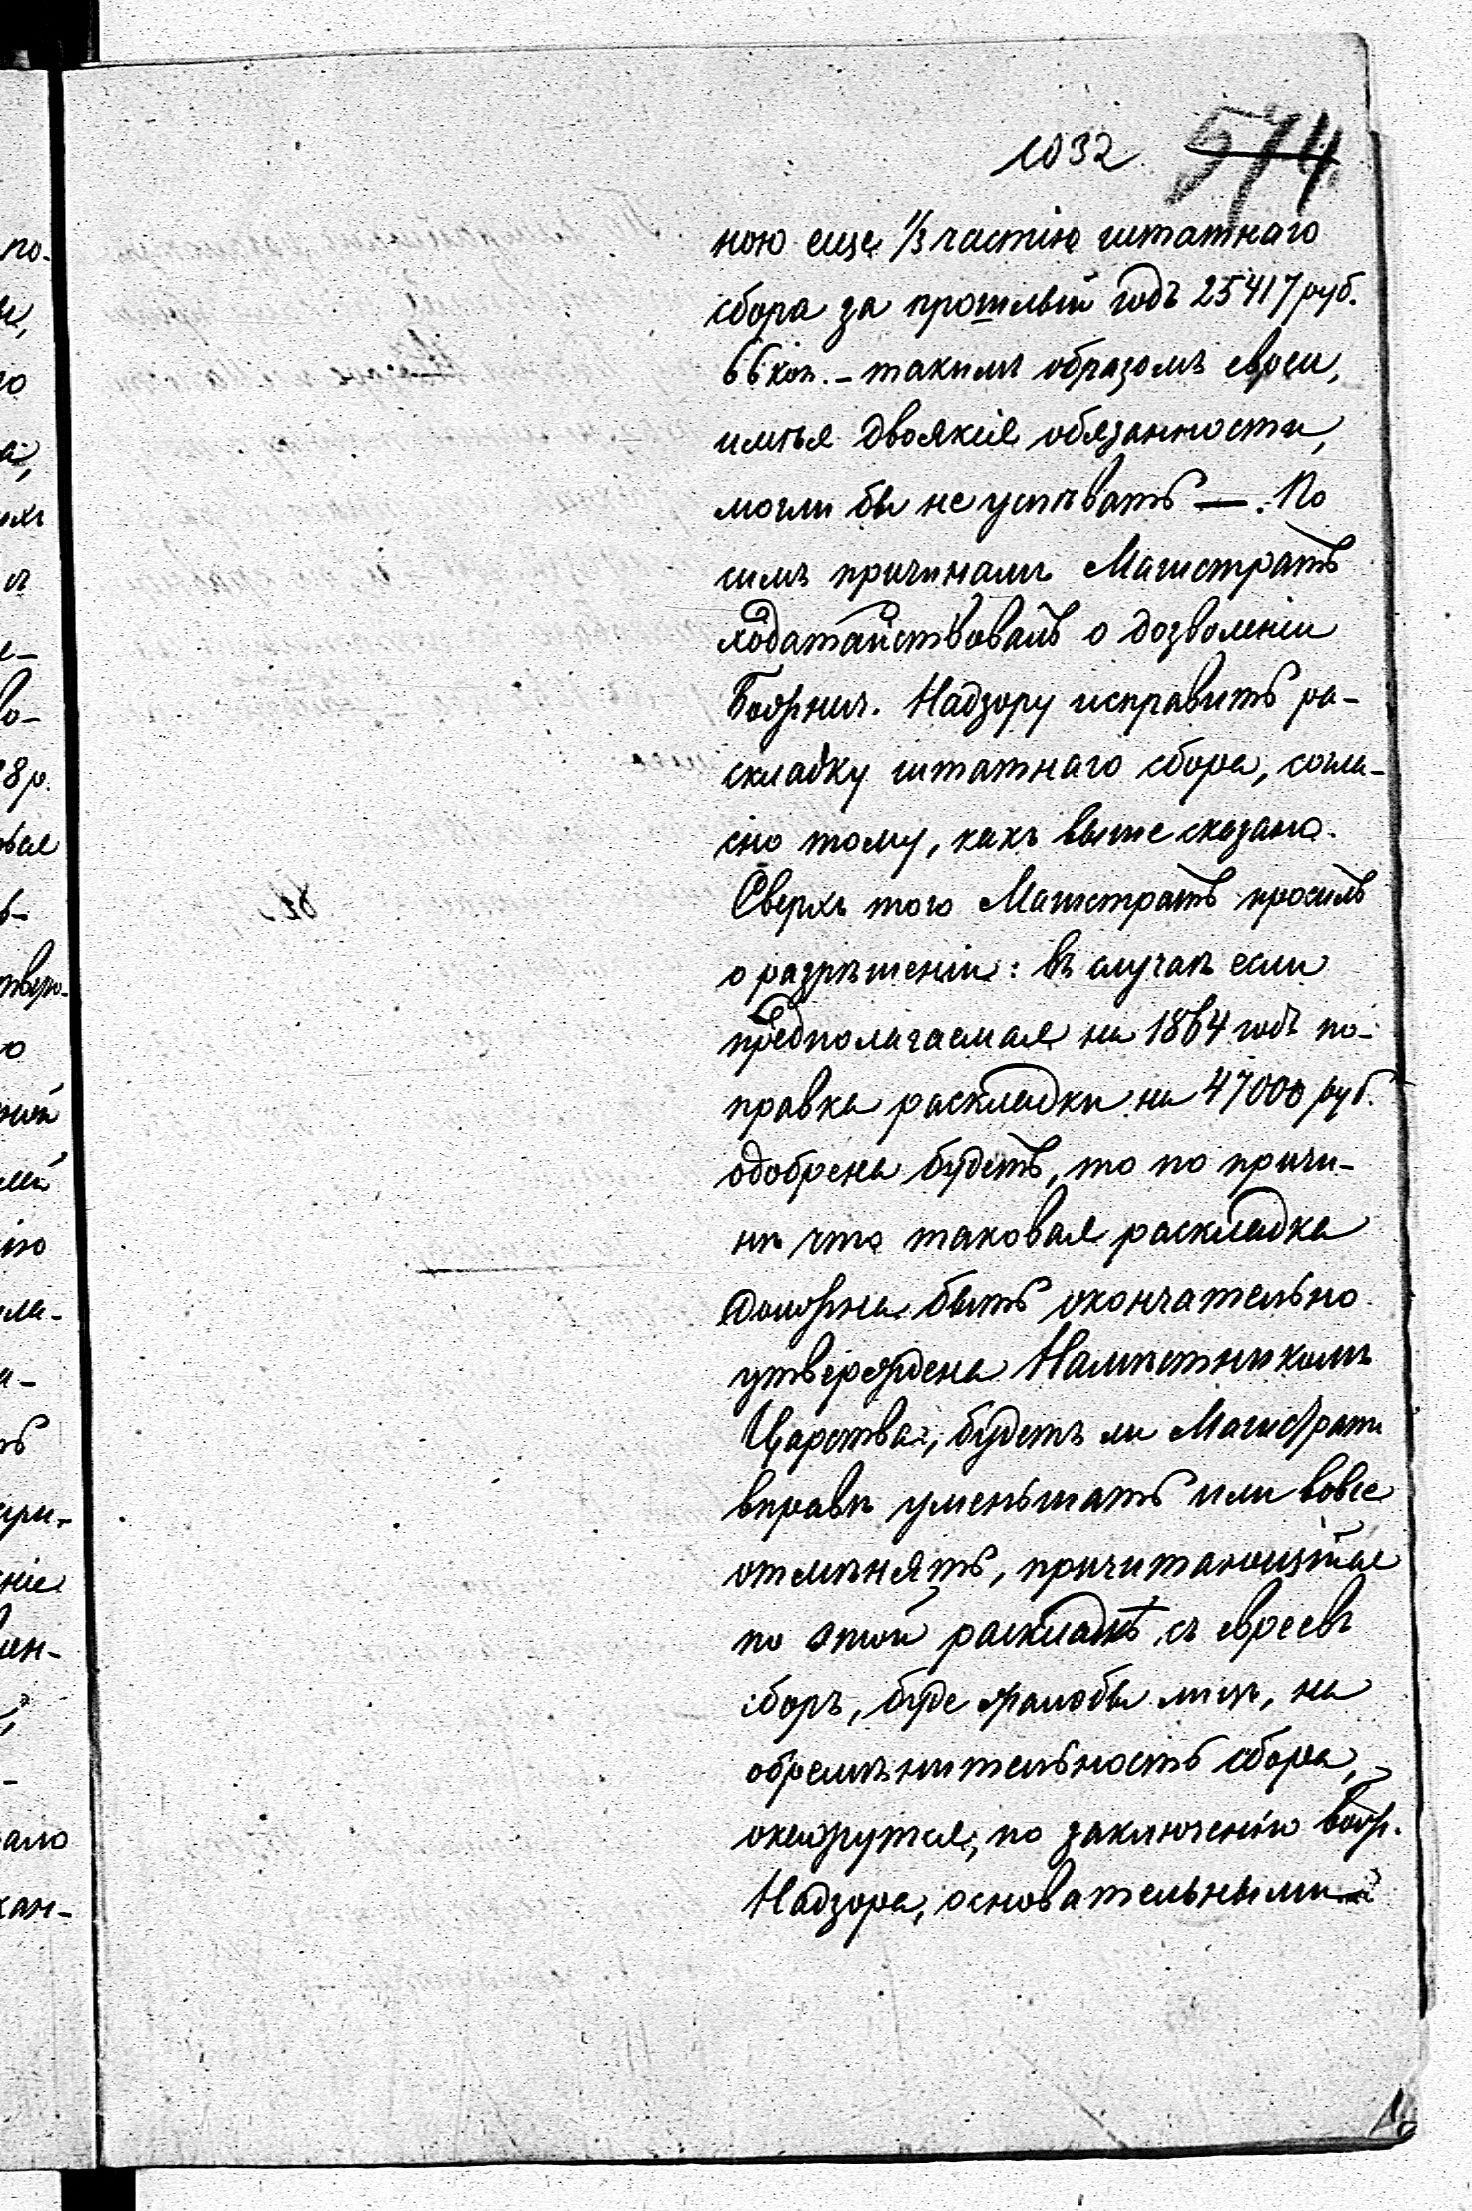 1032 574
ною еще 1/3 частію штатнаго
сбора за прошлый годъ 25417 руб.
66 коп. – такимъ образомъ евреи,
имѣя двоякія обязанности,
могли бы не успѣвать —. По
симъ причинамъ Магистратъ
ходатайствовалъ о дозволеніи
Божнич. Надзору исправить ра-
складку штатнаго сбора, согла-
сно тому, какъ выше сказано.
Сверхъ того Магистратъ просилъ
о разрѣшеніи: въ случаѣ если
предполагаемая на 1864 годъ по-
правка раскладки на 47000 руб.
одобрена будетъ, то по причи-
нѣ что таковая раскладка
должна быть окончательно
утверждена Намѣстникомъ
Царства, будетъ ли Магистратъ
вправѣ уменьшать или вовсе
отмѣнять, причитающійся
по этой раскладкѣ съ евреевъ
сборъ, буде жалобы лицъ, на
обремѣнительность сбора,
окажутся, по заключенію бож.
Надзора, основательными
по-
го
а,
ихъ
е-
во-
8 р.
о
ной
лей
ію
а-
ть
при-
ніе
ен-
ало
кан-